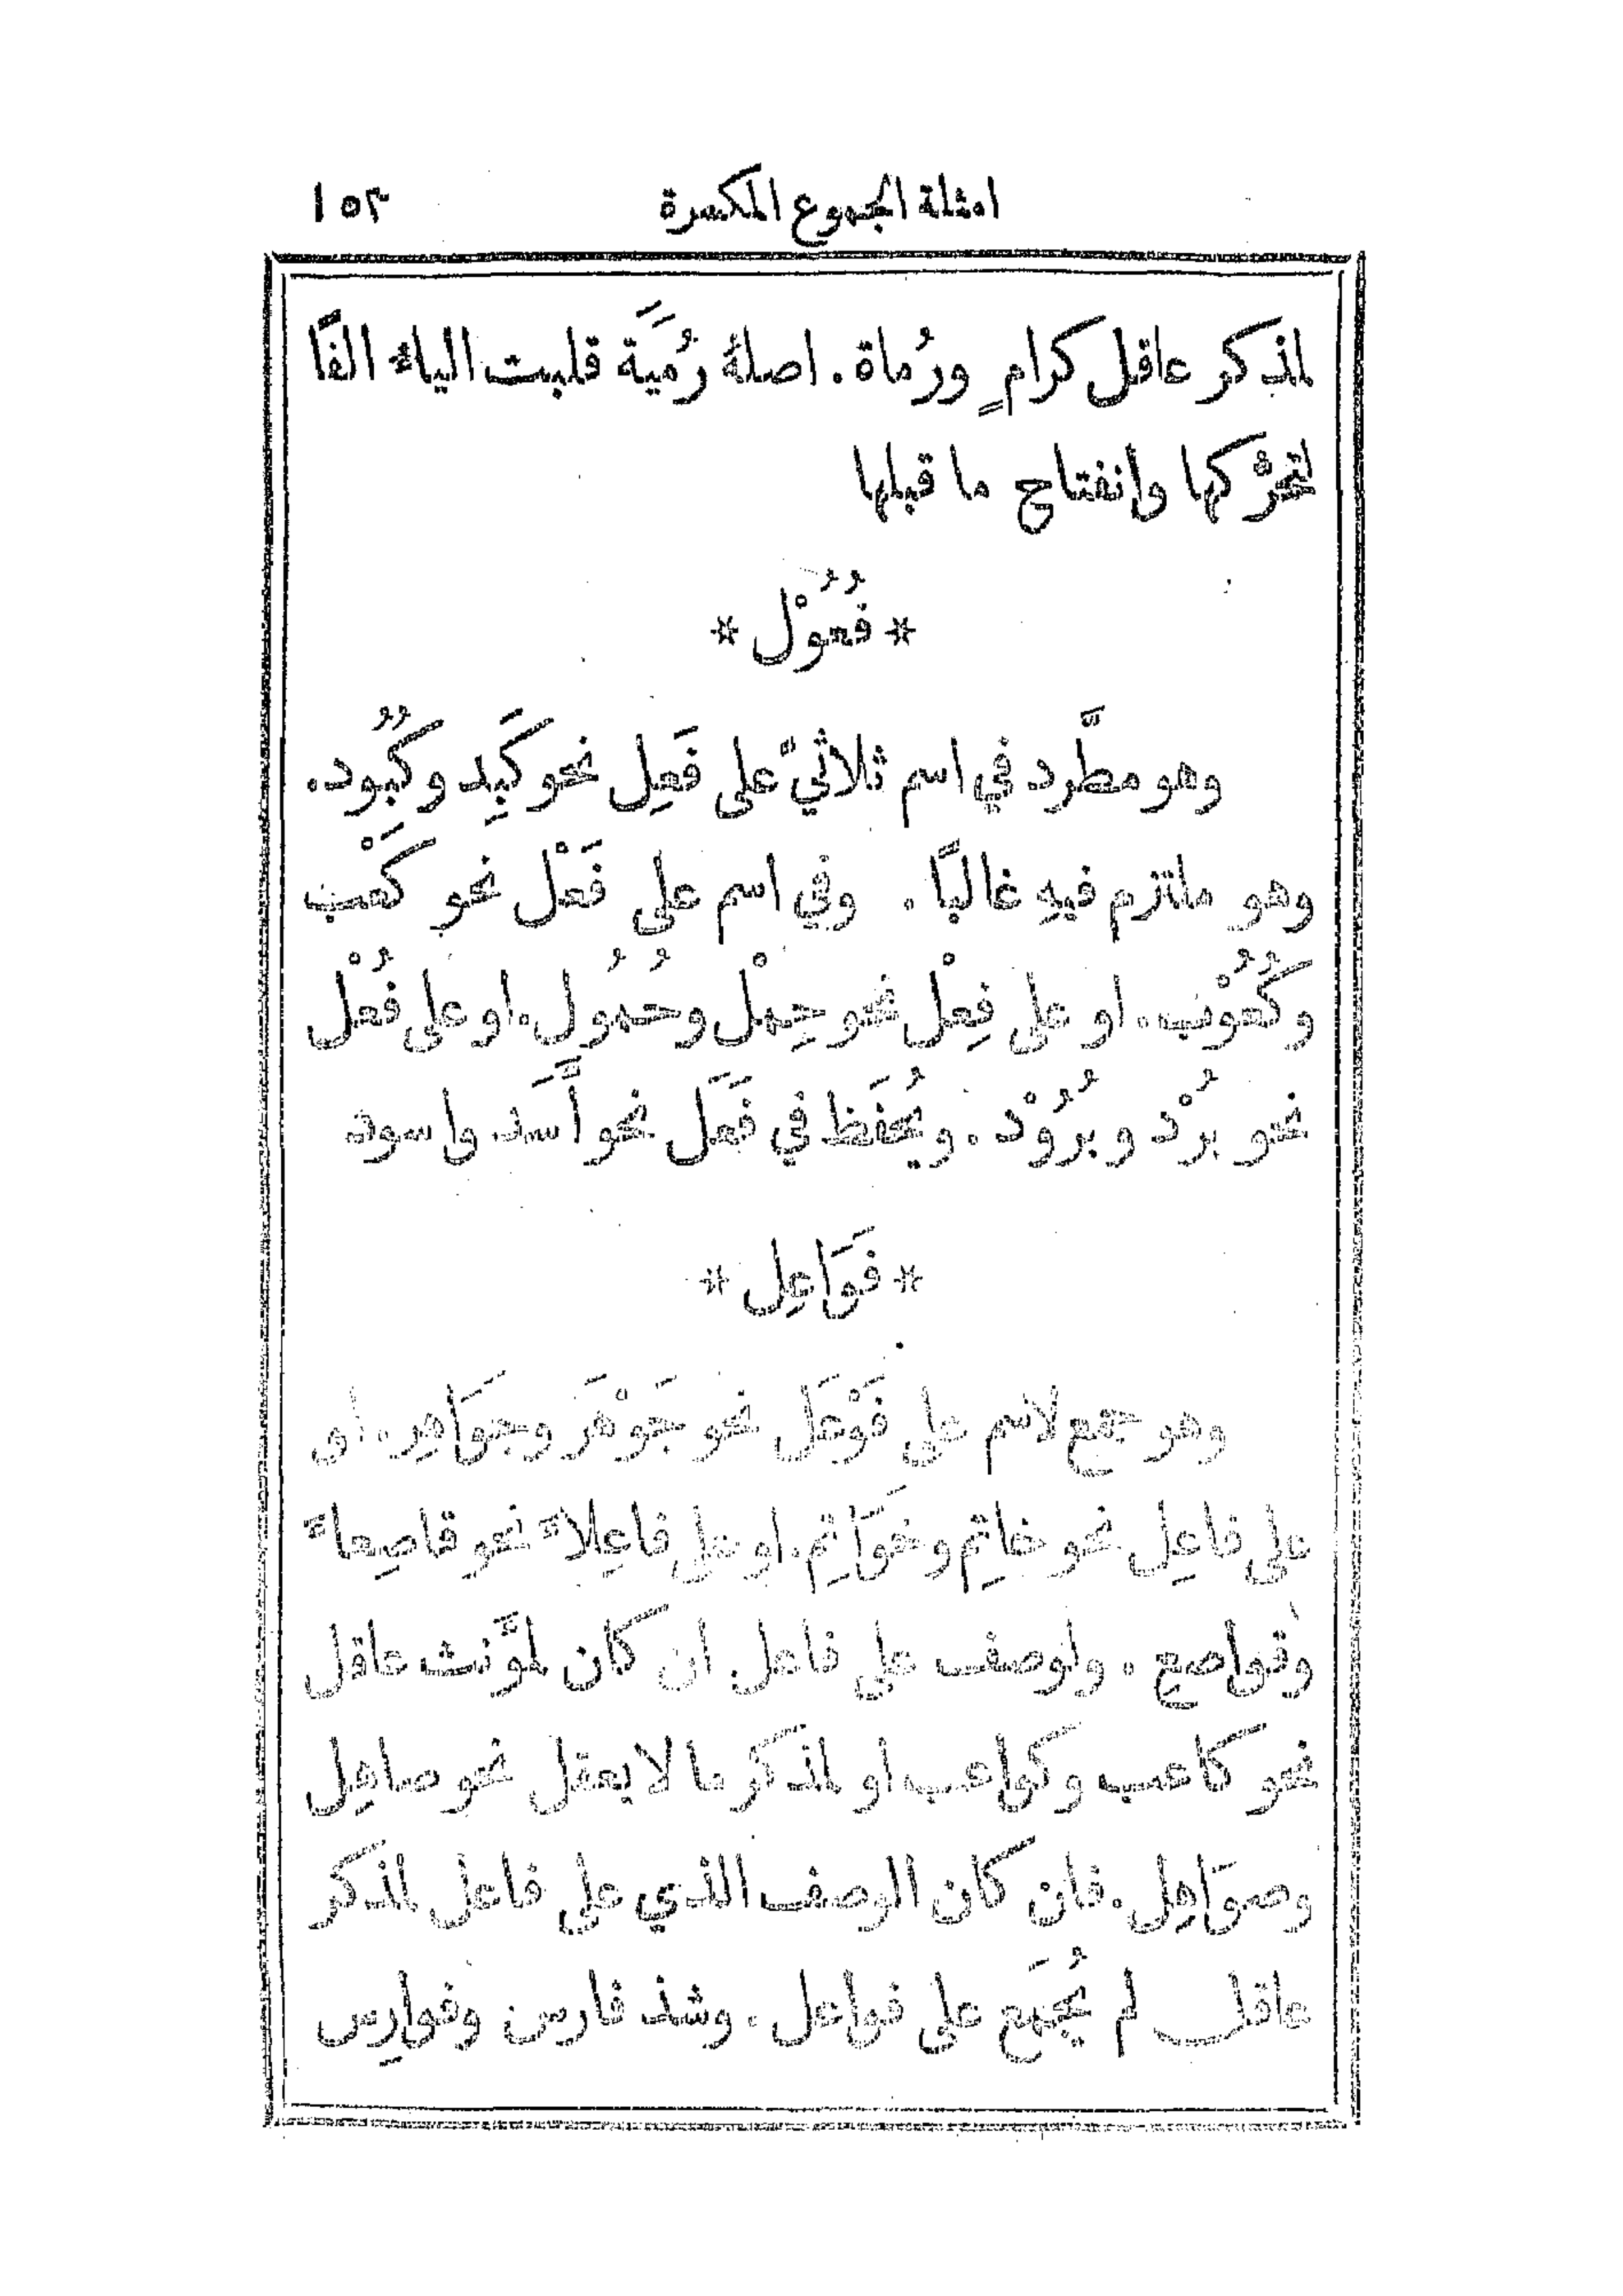 امثلة الجموع المكسرة ١٥٣
لمذكر عاقل كرامٍ ورُماة. اصلهُ رُمَيَة قلبت الياءُ الفًا
لتحرُّكها وانفتاح ما قبلها
* فُعُوْل *
وهو مطَّرد في اسم ثلاثيّ على فَعِل نحو كَبِد وكُبُود.
وهو ملتزم فيهِ غالبًا. وفي اسم على فَعْل نحو كَعْب
وكُعُوْب. او على فِعْل نحو حِمْل وحُمُول. او على فُعْل
نحو بُرْد وبُرُوْد. ويُحفَظ في فَعَل نحو أَسَد واسود
* فَوَاعِل *
وهو جمع لاسم على فَوْعَل نحو جَوْهَر وجَوَاهِر. او
على فاعِل نحو خاتِم وخَوَاتِم. او على فاعِلاءَ نحو قاصِعاءَ
وقواصع. ولوصف على فاعل ان كان لمؤَنث عاقل
نحو كاعب وكواعب او لمذكر ما لا يعقل نحو صاهِل
وصوَاهِل. فان كان الوصف الذي على فاعل لمذكر
عاقل لم يُجمَع على فواعل. وشذ فارس وفوارِس